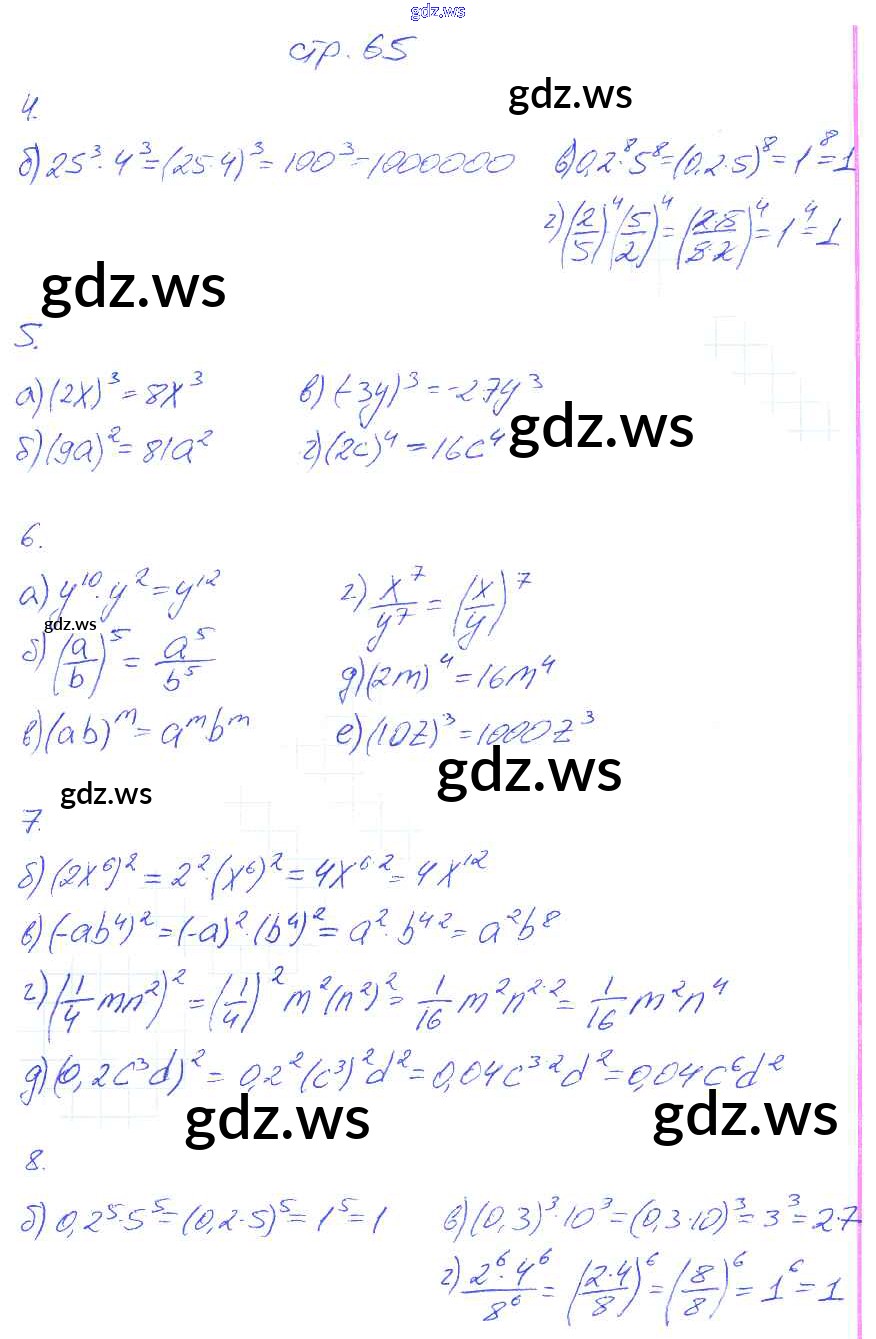 gdz.ws
стр. 65
gdz.ws
4.
б) 25³·4³=(25·4)³=100³=1000000 в) 0,2⁸·5⁸=(0,2·5)⁸=1⁸=1
г) (2/5)⁴(5/2)⁴=(2·5/5·2)⁴=1⁴=1
gdz.ws
5.
а) (2x)³=8x³ в) (-3y)³=-27y³
gdz.ws
б) (9a)²=81a² г) (2c)⁴=16c⁴
6.
а) y¹⁰·y²=y¹² г) x⁷/y⁷=(x/y)⁷
gdz.ws
б) (a/b)⁵=a⁵/b⁵
д) (2m)⁴=16m⁴
в) (ab)ᵐ=aᵐbᵐ е) (10z)³=1000z³
gdz.ws
gdz.ws
7.
б) (2x⁶)²=2²·(x⁶)²=4x⁶·²=4x¹²
в) (-ab⁴)²=(-a)²·(b⁴)²=a²·b⁴·²=a²b⁸
г) (1/4 mn²)²=(1/4)²m²(n²)²=1/16 m²n²·²=1/16 m²n⁴
д) (0,2c³d)²=0,2²(c³)²d²=0,04c³·²d²=0,04c⁶d²
gdz.ws gdz.ws
8.
б) 0,2⁵·5⁵=(0,2·5)⁵=1⁵=1 в) (0,3)³·10³=(0,3·10)³=3³=27
г) 2⁶·4⁶/8⁶=(2·4/8)⁶=(8/8)⁶=1⁶=1